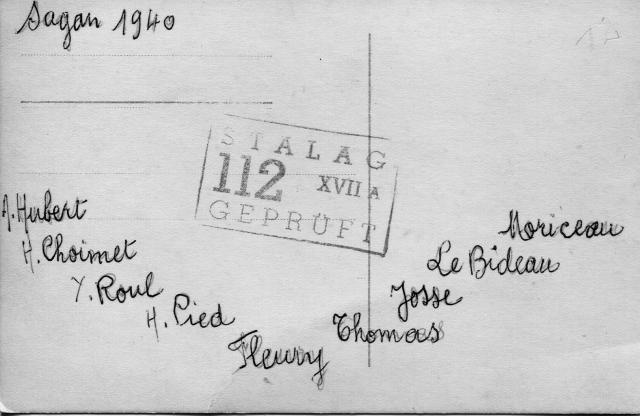 Sagan 1940
STALAG
112 XVII A
GEPRÜFT
A. Hubert
H. Choimet
Y. Roul
H. Pied
Fleury
Thomas
Josse
Le Bideau
Moriceau